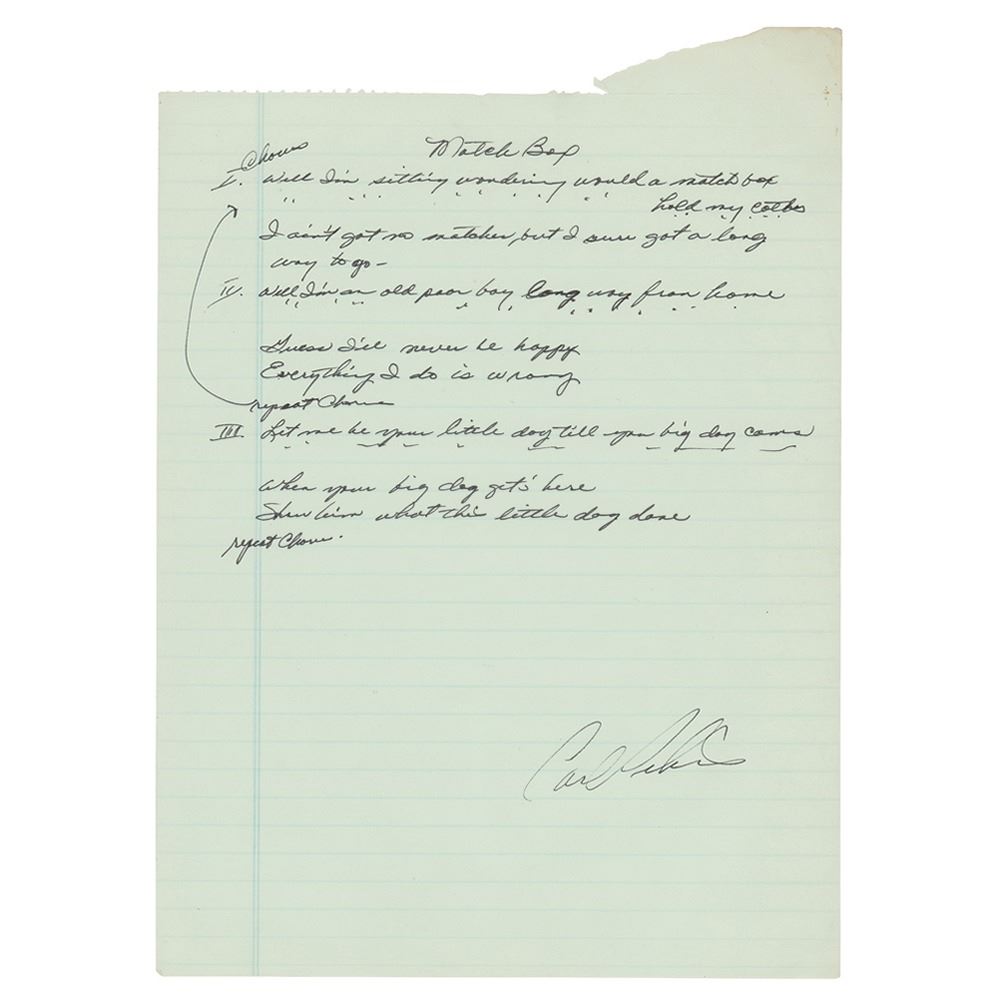 Match Box
Chorus
I. Well I'm sitting wondering would a match box
hold my cothes
I ain't got no matches, but I sure got a long
way to go -
IV. Well I'm an old poor boy long way from home
Guess I'll never be happy
Everything I do is wrong
repeat Chorus
III. Let me be your little dog till you big dog coms
When your big dog gets here
Show him what this little dog done
repeat Chorus.
Carl Perkins